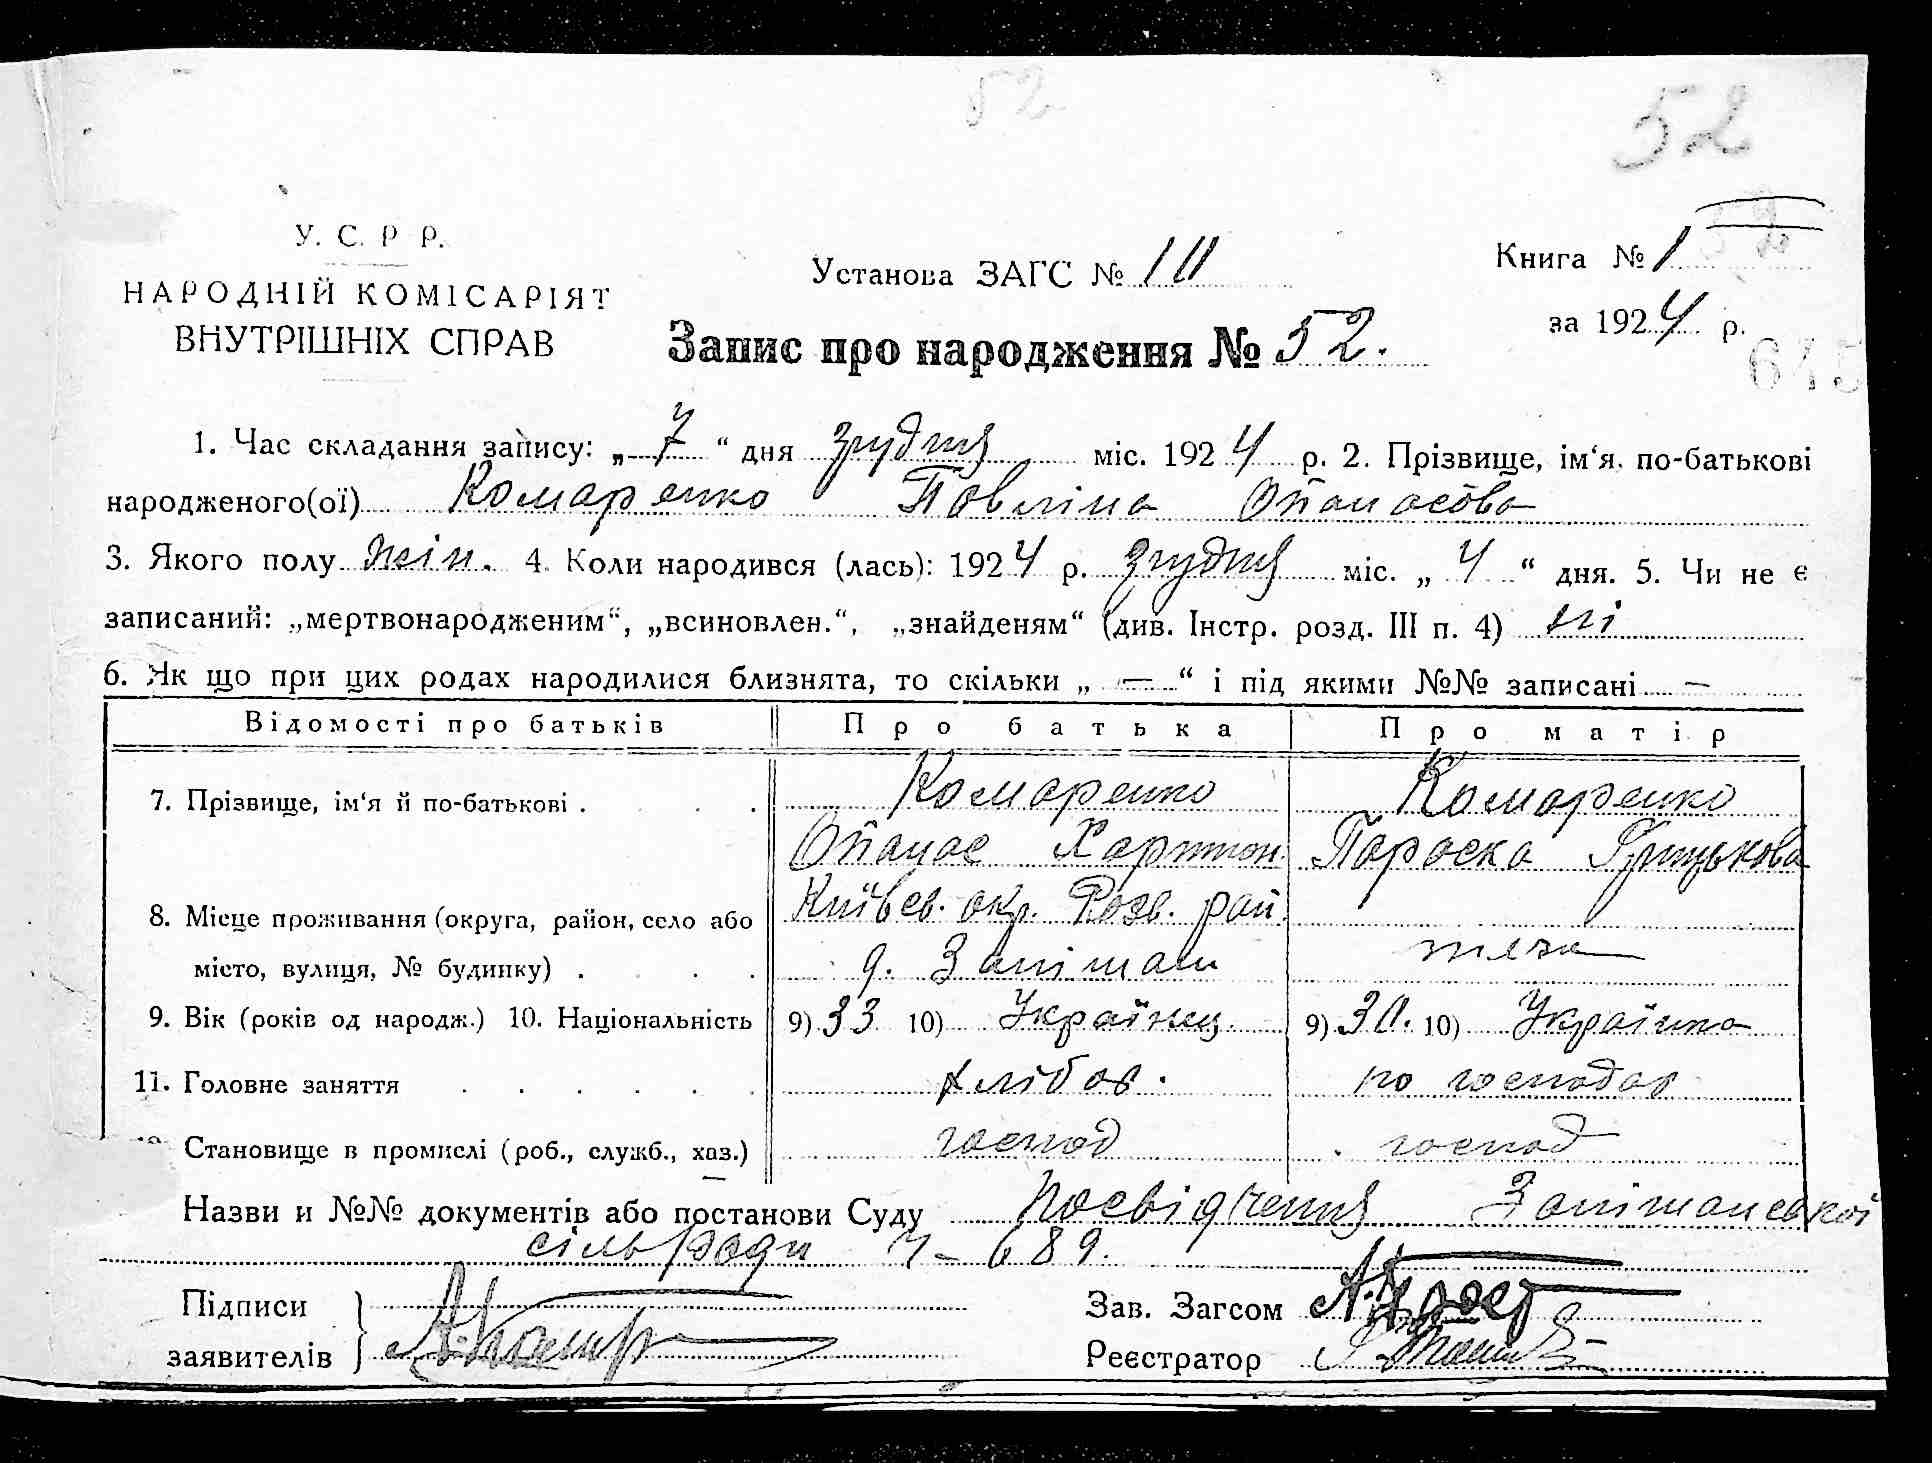 52
52
У. С. Р Р.
НАРОДНІЙ КОМІСАРІЯТ
ВНУТРІШНІХ СПРАВ
Установа ЗАГС № 10
Книга № 1
за 1924 р.
645
Запис про народження № 52.
1. Час складання запису: „7“ дня грудня міс. 1924 р. 2. Прізвище, ім‘я, по-батькові
народженого(ої) Комаренко Павліна Опанасова
3. Якого полу жін. 4. Коли народився (лась): 1924 р. грудня міс. „4“ дня. 5. Чи не є
записаний: „мертвонародженим“, „всиновлен.“, „знайденям“ (див. Інстр. розд. III п. 4) ні
6. Як що при цих родах народилися близнята, то скільки „—“ і під якими №№ записані —
Відомості про батьків Про батька Про матір
7. Прізвище, ім‘я й по-батькові . . . . Комаренко Комаренко
Опанас Харитон. Параска Грицькова
8. Місце проживання (округа, район, село або Київсв. окр. Розв. рай.
місто, вулиця, № будинку) . . . . д. Запітан теж
9. Вік (років од народж.) 10. Національність 9) 33 10) Українец. 9) 30. 10) Українка
11. Головне заняття . . . . . хлібор. по господар
Становище в промислі (роб., служб., хаз.) господ господ
Назви и №№ документів або постанови Суду Посвідчення
сільради Ч– 689.
Підписи
заявителів
Зав. Загсом
Реєстратор